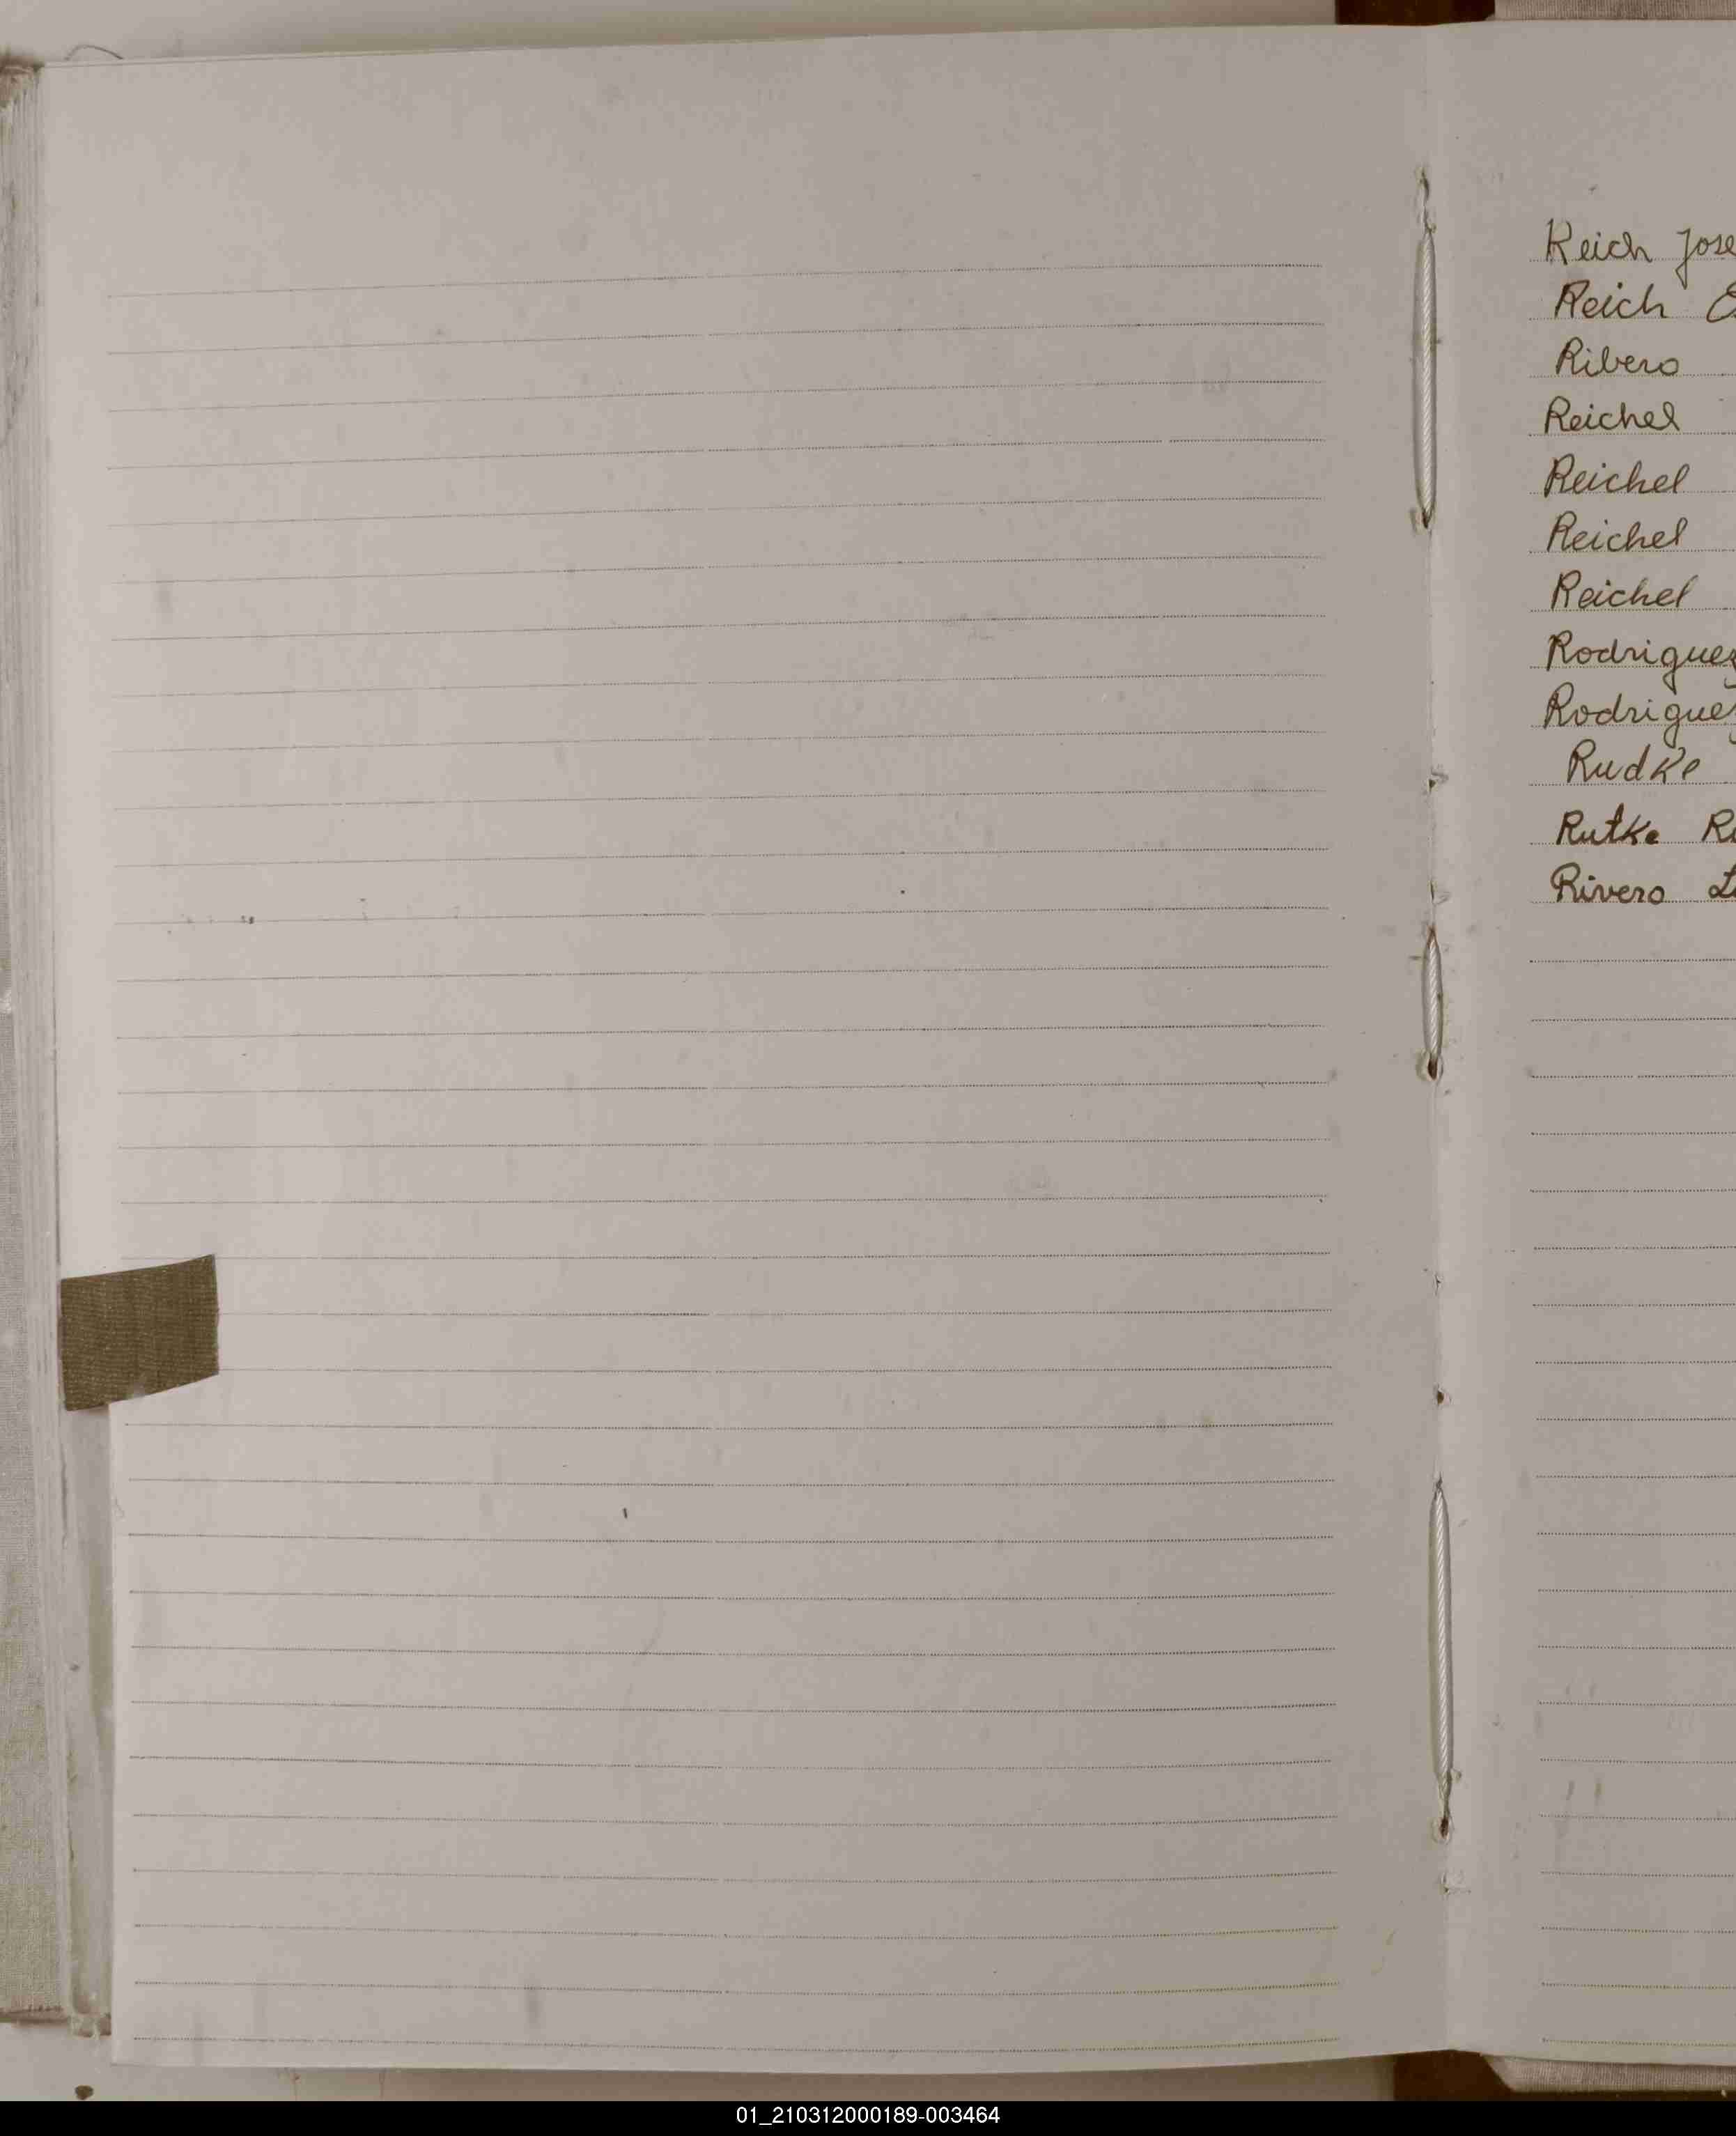 Reich Jose
Reich
Ribero
Reichel
Reichel
Reichel
Reichel
Rodriguez
Rodriguez
Rudke
Rutke R
Rivero
01_210312000189-003464